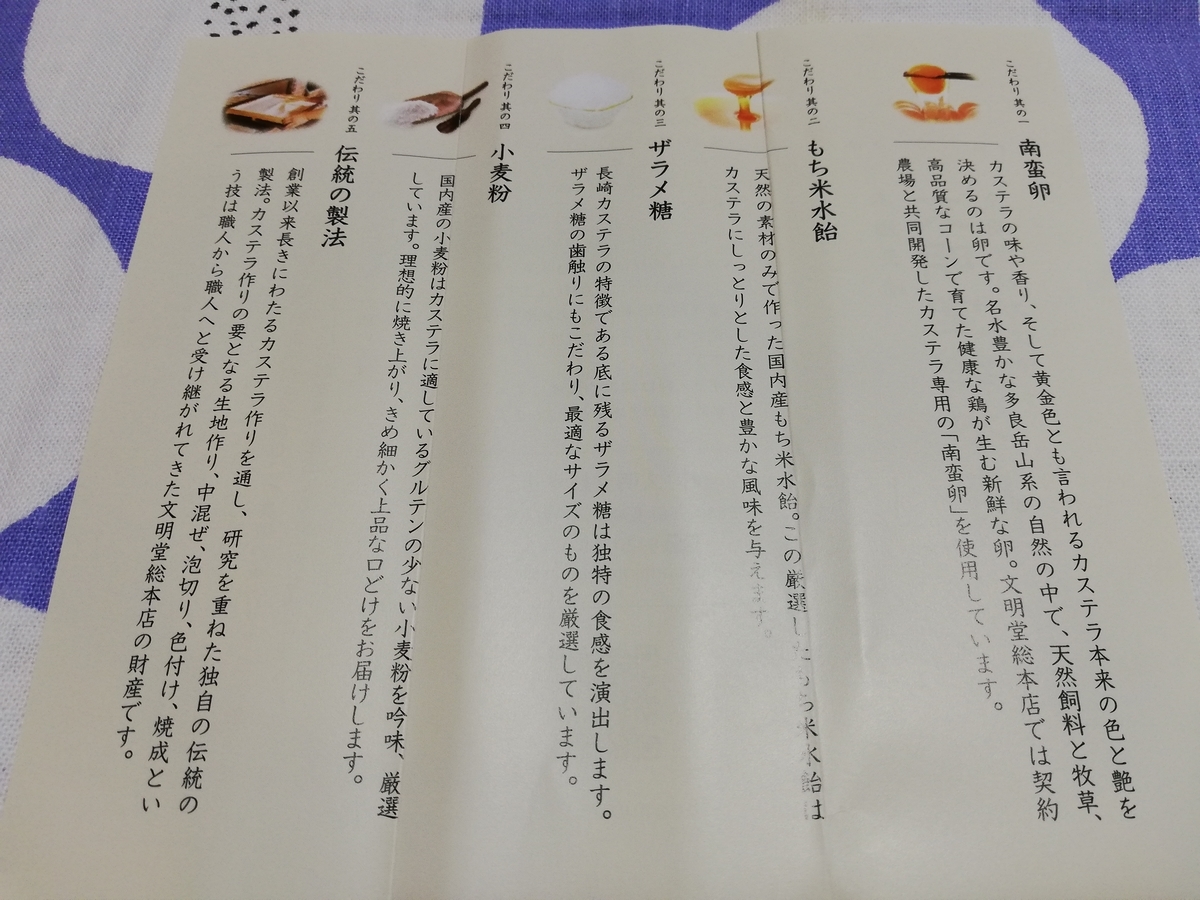 こだわり 其の一
南蛮卵
カステラの味や香り、そして黄金色とも言われるカステラ本来の色と艶を
決めるのは卵です。名水豊かな多良岳山系の自然の中で、天然飼料と牧草、
高品質なコーンで育てた健康な鶏が生む新鮮な卵。文明堂総本店では契約
農場と共同開発したカステラ専用の「南蛮卵」を使用しています。
こだわり 其の二
もち米水飴
天然の素材のみで作った国内産もち米水飴。この厳選したもち米水飴は
カステラにしっとりとした食感と豊かな風味を与えます。
こだわり 其の三
ザラメ糖
長崎カステラの特徴である底に残るザラメ糖は独特の食感を演出します。
ザラメ糖の歯触りにもこだわり、最適なサイズのものを厳選しています。
こだわり 其の四
小麦粉
国内産の小麦粉はカステラに適しているグルテンの少ない小麦粉を吟味、厳選
しています。理想的に焼き上がり、きめ細かく上品な口どけをお届けします。
こだわり 其の五
伝統の製法
創業以来長きにわたるカステラ作りを通し、研究を重ねた独自の伝統の
製法。カステラ作りの要となる生地作り、中混ぜ、泡切り、色付け、焼成とい
う技は職人から職人へと受け継がれてきた文明堂総本店の財産です。